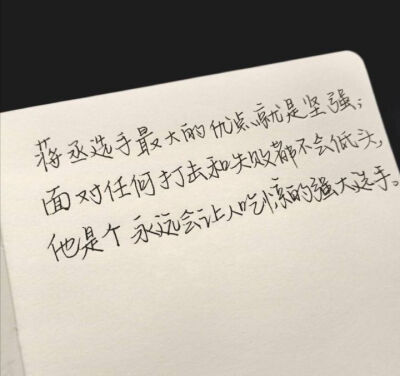 蒋丞选手最大的优点就是坚强；
面对任何打击和失败都不会低头，
他是个永远会让人吃惊的强大选手。